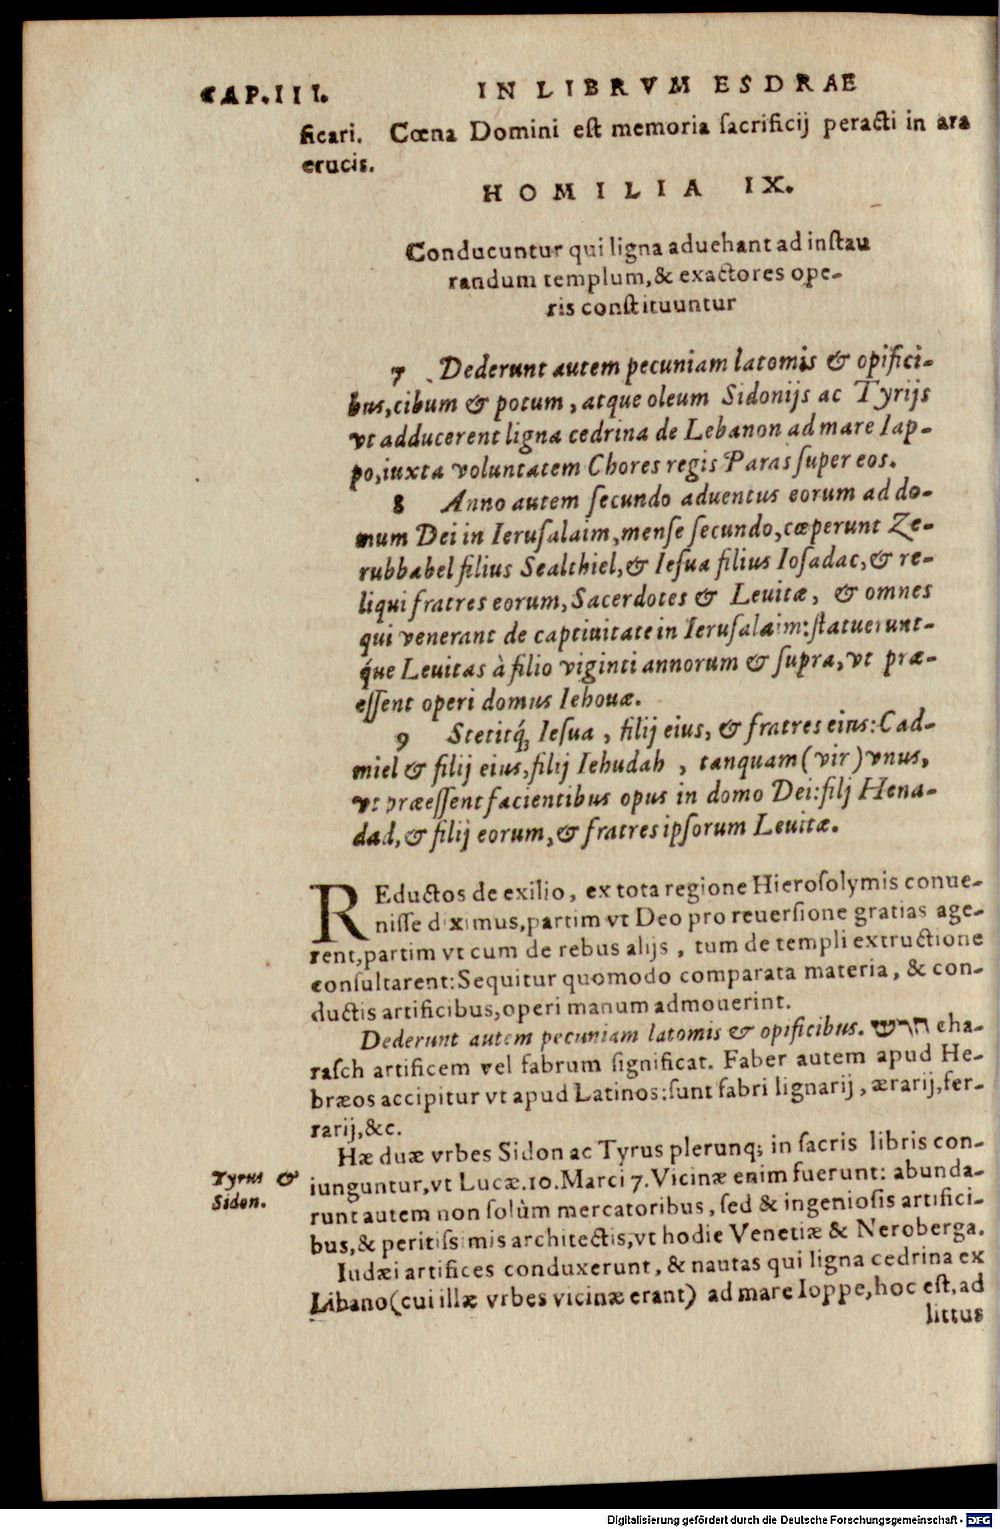 CAP. III. IN LIBRVM ESDRAE
ficari. Cœna Domini est memoria sacrificij peracti in ara
crucis.
HOMILIA IX.
Conducuntur qui ligna aduehant ad instau
randum templum, & exactores ope-
ris constituuntur
7 Dederunt autem pecuniam latomis & opifici-
bus, cibum & potum, atque oleum Sidonijs ac Tyrijs
vt adducerent ligna cedrina de Lebanon ad mare Iap-
po, iuxta voluntatem Chores regis Paras super eos.
8 Anno autem secundo aduentus eorum ad do-
mum Dei in Ierusalaim, mense secundo, cœperunt Ze-
rubbabel filius Sealthiel, & Iesua filius Iosadac, & re-
liqui fratres eorum, Sacerdotes & Leuitæ, & omnes
qui venerant de captiuitate in Ierusalaim: statuerunt-
q́ue Leuitas à filio viginti annorum & supra, vt præ-
essent operi domus Iehouæ.
9 Stetitq́; Iesua, filij eius, & fratres eius: Cad-
miel & filij eius, filij Iehudah, tanquam (vir) vnus,
vt præessent facientibus opus in domo Dei: filj Hena-
dad, & filij eorum, & fratres ipsorum Leuitæ.
REductos de exilio, ex tota regione Hierosolymis conue-
nisse diximus, partim vt Deo pro reuersione gratias age-
rent, partim vt cum de rebus alijs, tum de templi extructione
consultarent: Sequitur quomodo comparata materia, & con-
ductis artificibus, operi manum admouerint.
Dederunt autem pecuniam latomis & opificibus. חרש cha-
rasch artificem vel fabrum significat. Faber autem apud He-
bræos accipitur vt apud Latinos: sunt fabri lignarij, ærarij, fer-
rarij, &c.
Hæ duæ vrbes Sidon ac Tyrus plerunq; in sacris libris con-
Tyrus & iunguntur, vt Lucæ. 10. Marci 7. Vicinæ enim fuerunt: abunda-
Sidon. runt autem non solùm mercatoribus, sed & ingeniosis artifici-
bus, & peritissimis architectis, vt hodie Venetiæ & Neroberga.
Iudæi artifices conduxerunt, & nautas qui ligna cedrina ex
Libano (cui illæ vrbes vicinæ erant) ad mare Ioppe, hoc est, ad
littus
Digitalisierung gefördert durch die Deutsche Forschungsgemeinschaft - DFG